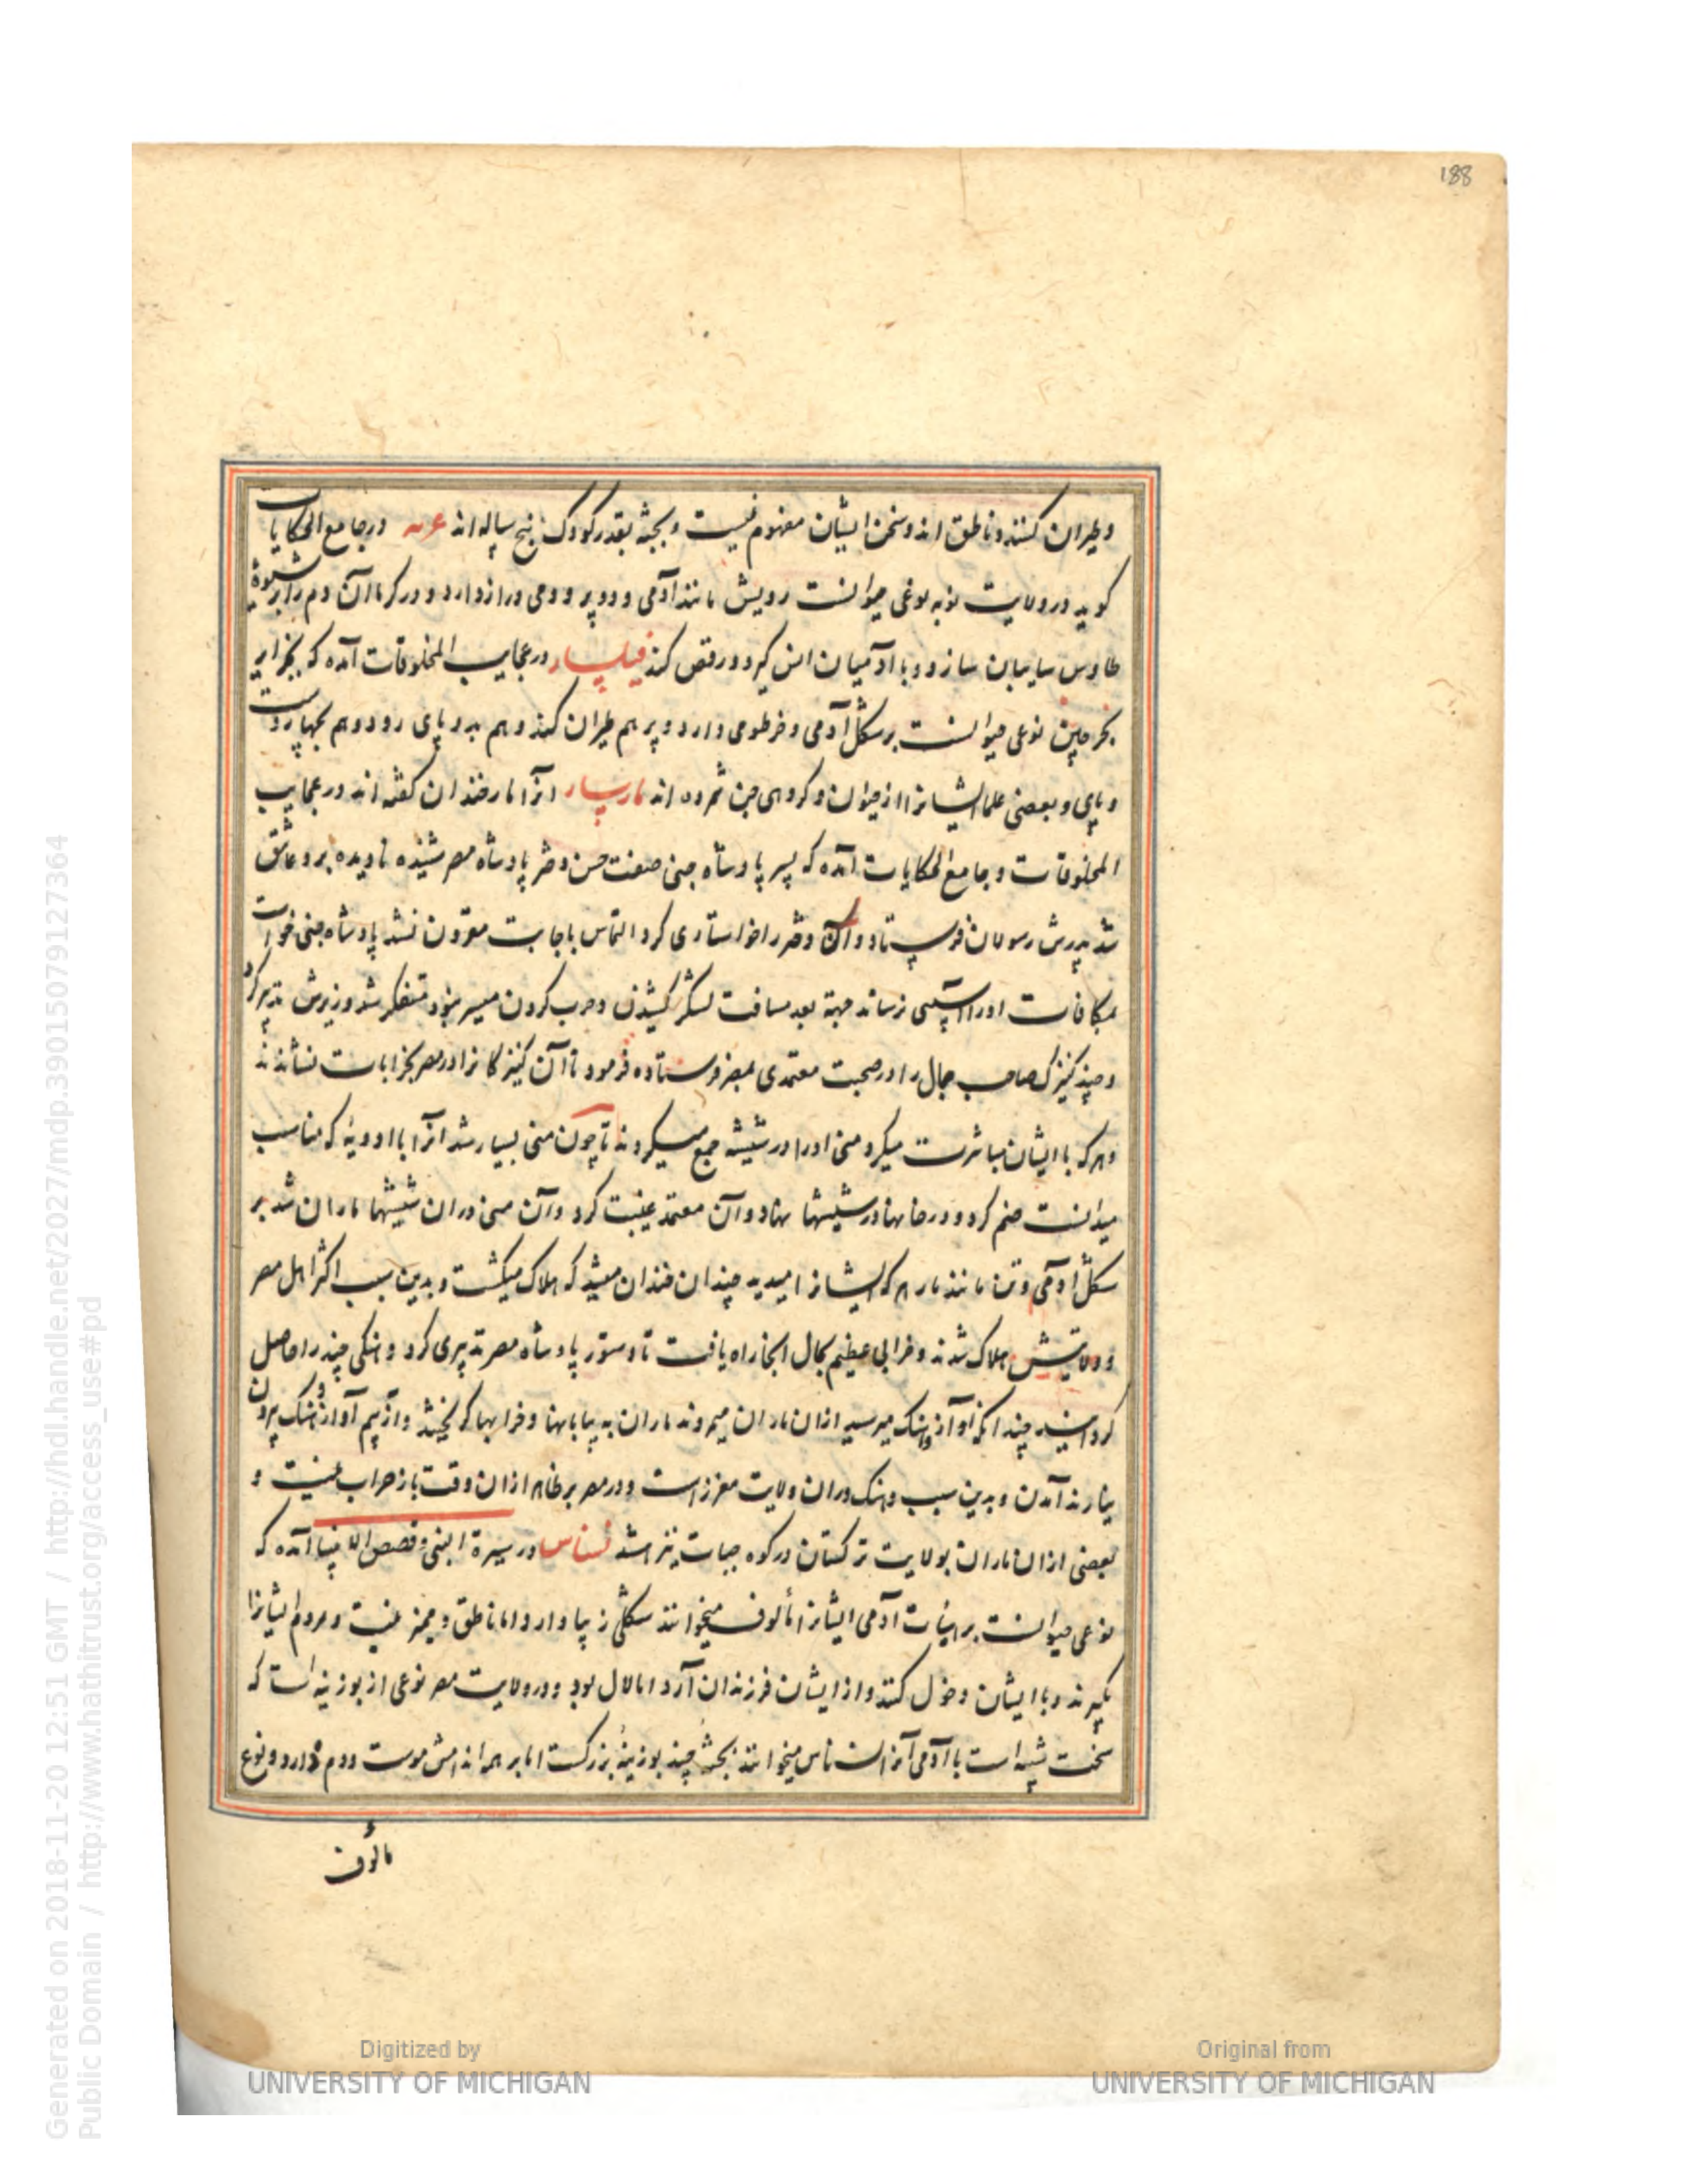 188
وطیران کنند و ناطق اند و سخن ایشان مفهوم نیست و بجثه بقدر کودک پنج ساله اند در جامع الحکایات
کوید در ولایت نوبه نوعی حیوانست رویش مانند آدمی و دو پر و دمی دراز دارد و در کرما آن دم را بر شیوهٔ
طاوس سایبان سازد و با آدمیان انس کیرد و رقص کند فیلسار در عجایب المخلوقات آمده که بجزایر
بحر چین نوعی حیوانست بر شکل آدمی و خرطومی دارد و پر هم طیران کند و هم بدو پای رود و هم بچهار دست
و پای و بعضی علما ایشانرا از حیوان و کروهی جن شمرده اند مارسار انرا مار خندان کفته اند در عجایب
المخلوقات و جامع الحکایات آمده که پسر پادشاه جنی صفت حسن دختر پادشاه مصر شنیده نادیده برو عاشق
شد پدرش رسولان فرستاد و آن دختر را خواستاری کرد التماس باجابت مقرون نشد پادشاه جنی خواست
بمکافات او را آسیبی رساند جهة بعد مسافت لشکر کشیدن و حرب کردن میسر نبود متفکر شد وزیرش تدبیر کرد
و چند کنیزک صاحب جمال را در صحبت معتمدی بمصر فرستاده فرمود تا آن کنیزکانرا در مصر بخرابات نشاندند
و هر که با ایشان مباشرت میکرد منی او را در شیشه جمع میکردند تا چون منی بسیار شد انرا با ادویهٔ که مناسب
میدانست ضم کرد و در خانها در شیشها نهاد و آن معتمد غیبت کرد و آن منی در ان شیشها ماران شد بر
شکل آدمی و تن مانند مار هر که ایشانرا میدید چندان خندان میشد که هلاک میکشت و بدین سبب اکثر اهل مصر
و ولایتش هلاک شدند و خرابی عظیم بحال انجا راه یافت تا دستور پادشاه مصر تدبیری کرد و خنکی چند را حاصل
کردانید چندانکه آواز میرسید ازان ماران میمردند ماران به بیابانها و خرابها کریختند و از بیم آواز بیرون
نیارند آمدن و بدین سبب در ان ولایت معزز است و در مصر بر ظاهر ازان وقت باز خراب نیست و
بعضی ازان ماران بولایت ترکستان در کوه نیز باشد نسناس در سیرة النبی و قصص الانبیا آمده که
نوعی حیوانست بر هیأت آدمی ایشانرا مألوف میخوانند شکلی زیبا دارد اما ناطق و ممیز نیست و مردم ایشانرا
بکیرند و با ایشان دخول کنند و از ایشان فرزندان آرد اما لال بود و در ولایت مصر نوعی از بوزینه است که
سخت شبیه است با آدمی آنرا نسناس میخوانند بجثه چند بوزینهٔ بزرکست اما بر همه اندامش موست و دم دارد و نوع
مالوف
Generated on 2018-11-20 12:51 GMT / http://hdl.handle.net/2027/mdp.39015079127364
Public Domain / http://www.hathitrust.org/access_use#pd
Digitized by
UNIVERSITY OF MICHIGAN
Original from
UNIVERSITY OF MICHIGAN